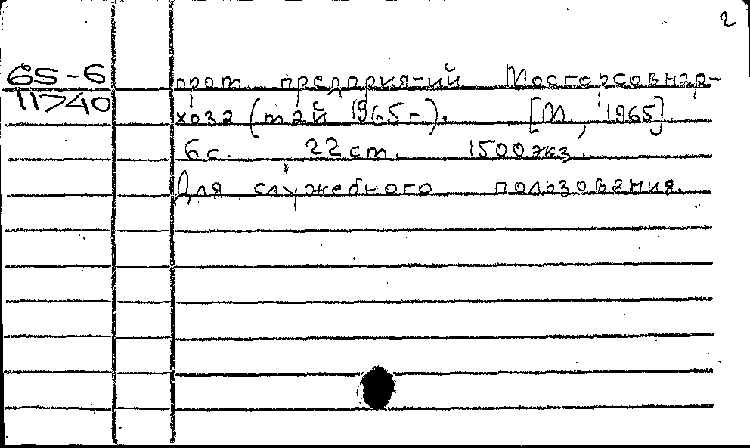 2
65-6
11740
прот. предприятий Мосгорсовнар-
хоза (май 1965-). [М, 1965]
6 с. 22 cm. 1500 экз.
Для служебного пользования.